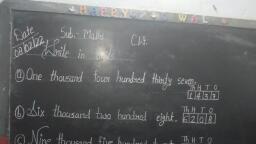 HAPPY WEL
Date
02/02/22
Sub:- Maths
Write in
ⓐ One thousand four hundred thirty seven.
Th H T O
1 4 3 7
ⓑ Six thousand two hundred eight.
Th H T O
6 2 0 8
ⓒ Nine thousand five hundred
Th H T O